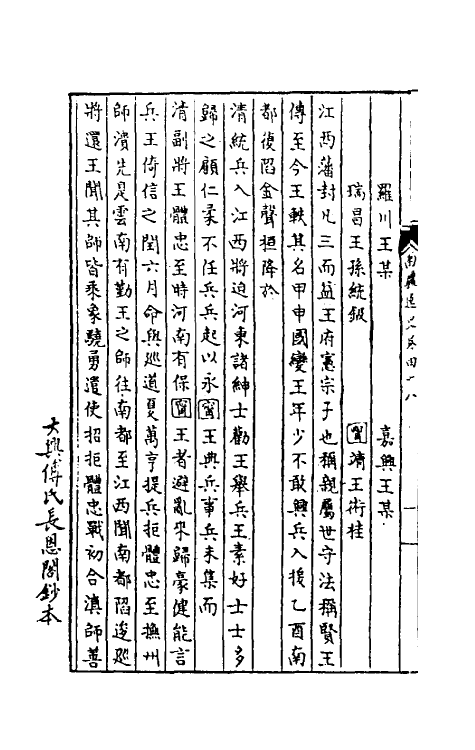 南疆逸史卷四十八
羅川王某　嘉興王某
瑞昌王孫統鈑　甯靖王術桂
江西藩封凡三而益王府憲宗子也稱親屬世守法稱賢王
傳至今王軼其名甲申國變王年少不敢興兵入援乙酉南
都復陷金聲桓降於
清統兵入江西將迫河東諸紳士勸王舉兵王素好士士多
歸之顧仁柔不任兵兵起以永甯王典兵事兵未集而
清副將王體忠至時河南有保甯王者避亂來歸豪健能言
兵王倚信之閏六月命與巡道夏萬亨提兵拒體忠至撫州
師潰先是雲南有勤王之師往南都至江西聞南都陷逡巡
將還王聞其師皆乘象驍勇遣使招拒體忠戰初合滇師善
大興傅氏長恩閣鈔本